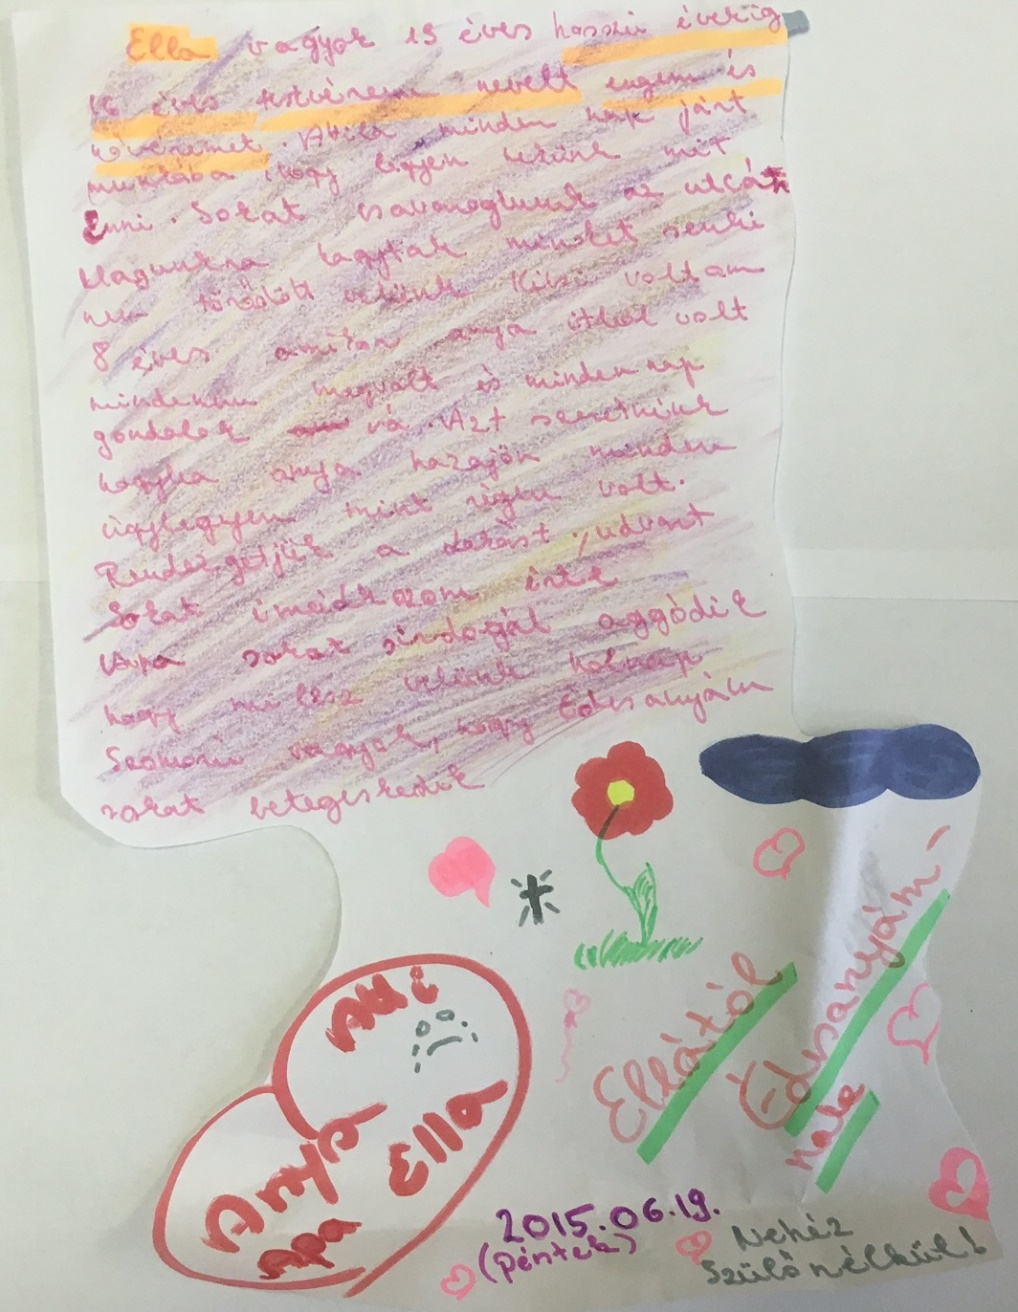 Ella vagyok 15 éves hosszú évekig
16 éves testvérem nevelt engem és
nővéremet. Attila minden nap járt
munkába hogy legyen nekünk mit
Enni. Sokat csavarogtunk az utcán
Magunkra hagytak minket senki
nem törödöt velünk Kicsi voltam
8 éves amikor anya itthol volt
mindenem megvolt és minden nap
gondolok rá. Azt szeretnénk
hogyha anya hazajön minden
úgylegyen mint régen volt.
Rendezgetjük a lakást, udvart
Sokat imádkozom érte
Apa sokat sirdogál aggódik
hogy mi lesz velünk holnap
Szomorú vagyok, hogy Édesanyám
sokat betegeskedik
Ati
Anya Ella
Apa
Ellától
Édsanyám
nak
2015.06.19.
(péntek)
Nehéz
Szülő nélkül!